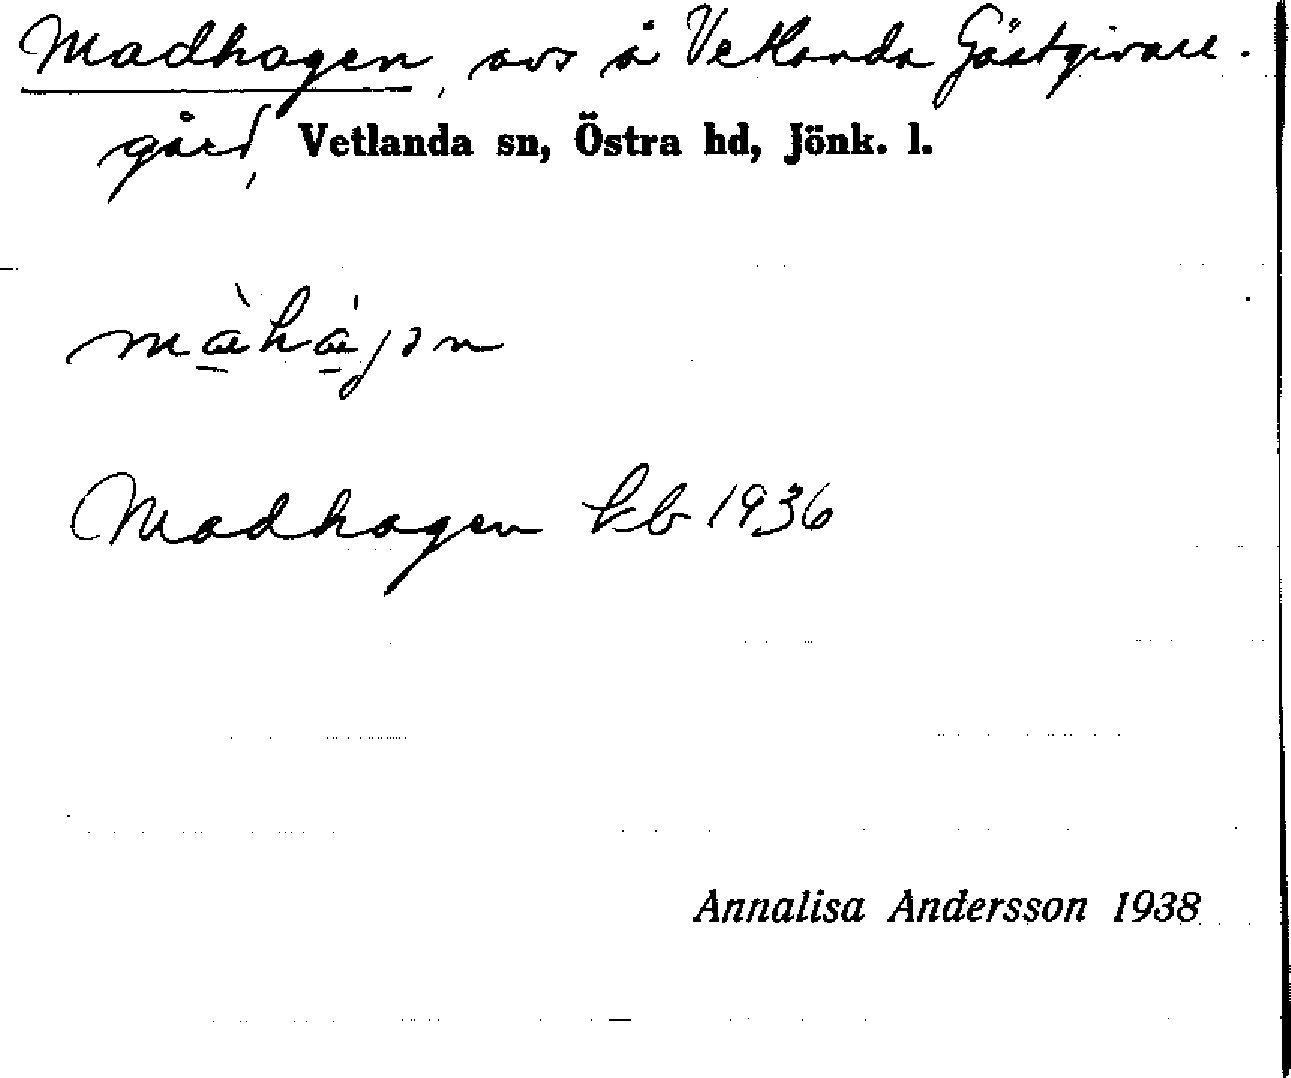 Madhagen, avs å Vetlanda Gästgivare-
gård, Vetlanda sn, Östra hd, Jönk. l.
Madhagen kb 1936
Annalisa Andersson 1938